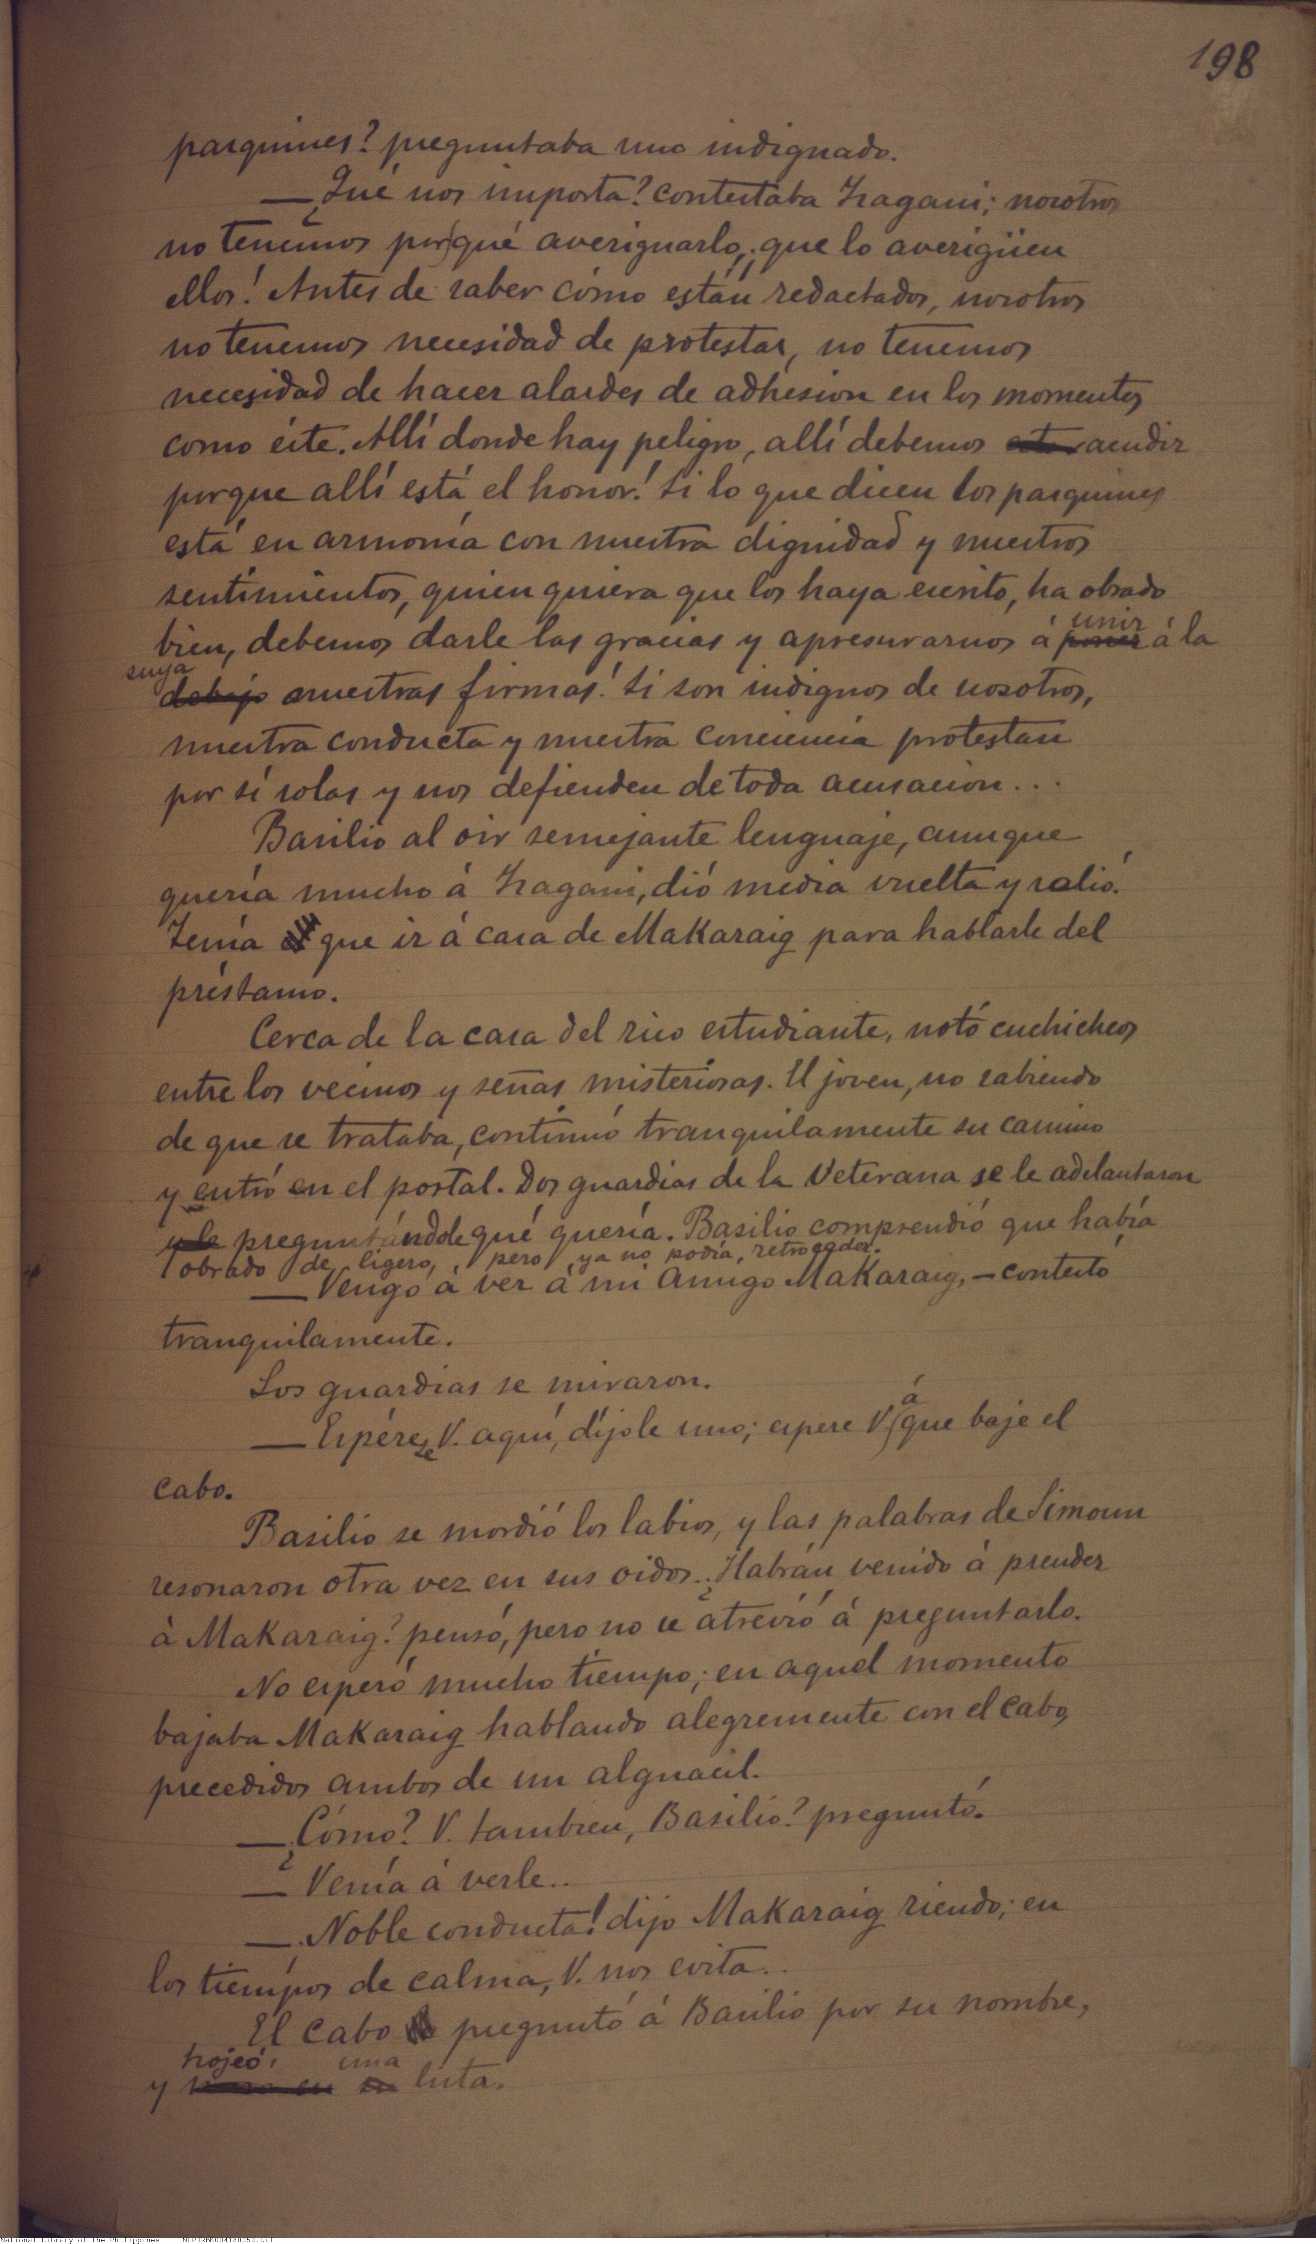 198
pasquines? preguntaba uno indignado.
— ¿Qué nos importa? contestaba Isagani; nosotros
no tenemos porqué averiguarlo,; que lo averigüen
ellos! Antes de saber cómo están redactados, nosotros
no tenemos necesidad de protestar, no tenemos
necesidad de hacer alardes de adhesion en los momentos
como éste. Allí donde hay peligro, allí debemos acudir
porque allí está el honor! Si lo que dicen los pasquines
está en armonía con nuestra dignidad y nuestros
sentimientos, quien quiera que los haya escrito, ha obrado
bien, debemos darle las gracias y apresurarnos á poner unir á la
suya debajo nuestras firmas! Si son indignos de nosotros,
nuestra conducta y nuestra conciencia protestan
por sí solas y nos defienden de toda acusacion...
Basilio al oir semejante lenguaje, aunque
quería mucho á Isagani, dió media vuelta y salió.
Tenía que ir á casa de Makaraig para hablarle del
préstamo.
Cerca de la casa del rico estudiante, notó cuchicheos
entre los vecinos y señas misteriosas. El joven, no sabiendo
de que se trataba, continuó tranquilamente su camino
y entró en el portal. Dos guardias de la Veterana se le adelantaron
y le preguntándole qué quería. Basilio comprendió que había
obrado de ligero, pero ya no podía, retroceder.
— Vengo á ver á mi amigo Makaraig, — contestó
tranquilamente.
Los guardias se miraron.
— Espérese V. aquí, díjole uno; espere V. á que baje el
cabo.
Basilio se mordió los labios, y las palabras de Simoun
resonaron otra vez en sus oidos.. ¿Habrán venido á prender
á Makaraig? pensó, pero no se atrevió á preguntarlo.
No esperó mucho tiempo; en aquel momento
bajaba Makaraig hablando alegremente con el cabo,
precedidos ambos de un alguacil.
— ¿Cómo? V. tambien, Basilio? preguntó.
— Venía á verle..
— Noble conducta! dijo Makaraig riendo; en
los tiempos de calma, V. nos evita..
El cabo preguntó á Basilio por su nombre,
y hojeó una lista.
National Library of the Philippines